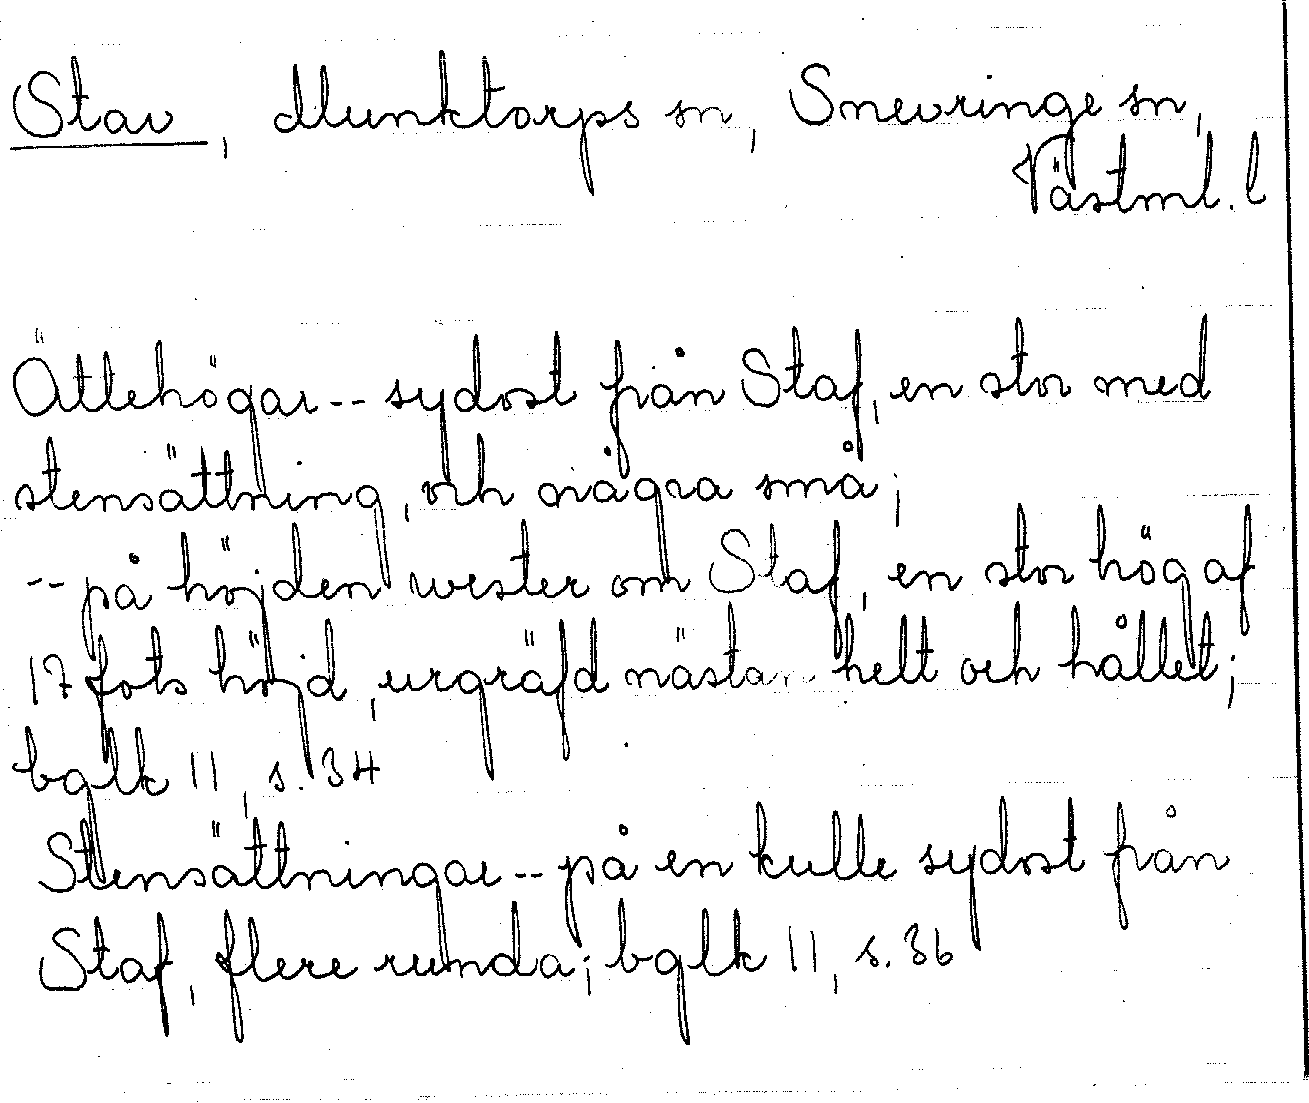 Stav, Munktorps sn, Snevringe sn,
Västml. l
Ättehögar -- sydost från Staf, en stor med
stensättning, och några små;
-- på höjden wester om Staf, en stor hög af
17 fots höjd, urgräfd nästan helt och hållet;
bglk 11, s. 34
Stensättningar -- på en kulle sydost från
Staf, flere runda; bglk 11, s. 36